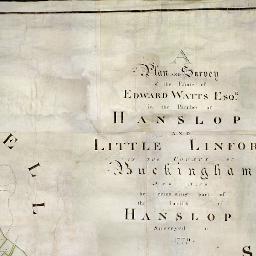 A
Plan AND Survey
of the Estate of
EDWARD WATTS ESQR.
in the Parishes of
HANSLOP
AND
LITTLE LINFOR
IN THE COUNTY OF
Buckingham
the remaining part of
the Parish of
HANSLOP
Surveyed in
1779
ELL
S